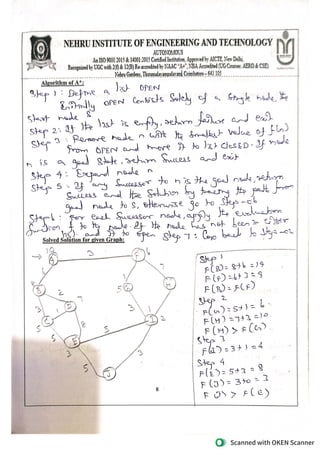 NEHRU INSTITUTE OF ENGINEERING AND TECHNOLOGY
AUTONOMOUS
An ISO 9001:2015 & 14001:2015 Certified Institution, Approved by AICTE, New Delhi,
Recognized by UGC with 2(f) & 12(B) Re-accredited by NAAC "A+", NBA Accredited (UG Course: AERO & CSE)
Nehru Gardens, Thirumalayampalayam Coimbatore – 641 105
Algorithm of A*:
Step 1: Define a list OPEN
Initially OPEN Consists Solely of a Single node, the
start node S
Step 2: If the list is empty, return failure and exit
Step 3: Remove node n with the Smallest value of f(n)
from OPEN and move it to list CLOSED. If node
n is a goal State, return Success and exit
Step 4: Expand node n
Step 5: If any Successor to n is the goal node, return
Success and the Solution by tracing the path from
goal node to S, otherwise go to Step-06
Step 6: For each Successor node, apply the evaluation
function f to the node. If the node has not been in either
it to open Step 7: Go back to Step-02
Solved Solution for given Graph:
Step 1
F(F)=6+3=9
Step 2
F(G)=5+1=6
F(H)=7+3=10
F(H)>F(G)
Step 3
F(I)=3+1=4
Step 4
F(E)=5+3=8
F(J)=3+0=3
8
Scanned with OKEN Scanner